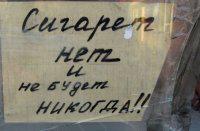 Сигарет
нет
и
не будет
никогда!!